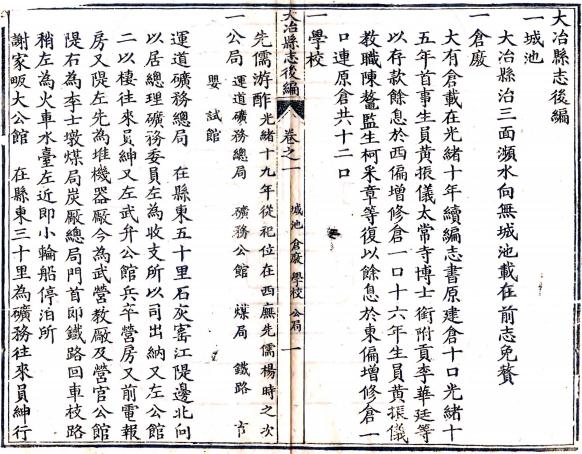 大冶縣志後編
一城池
大冶縣治三面瀕水向無城池載在前志免贅
一倉廒
大有倉載在光緒十年續編志書原建倉十口光緒十
五年首事生員黃振儀太常寺博士銜附貢李華廷等
以存款餘息於西偏增修倉一口十六年生員黃振儀
教職陳鰲監生柯采章等復以餘息於東偏增修倉一
口連原倉共十二口
一學校
大冶縣志後編 卷之一 城池 倉廒 學校 公局 一
先儒游酢光緒十九年從祀位在西廡先儒楊時之次
一公局 運道礦務總局 礦務公館 煤局 鐵路
嬰 試館
運道礦務總局 在縣東五十里石灰窰江隄邊北向
以居總理礦務委員左為收支所以司出納又左公館
二以棲往來員紳又左武弁公館兵卒營房又前電報
房又隄左先為堆機器廠今為武營教廠及營官公館
隄右為李士墩煤局炭廠總局門首即鐵路回車枝路
稍左為火車水臺左近即小輪船停泊所
謝家畈大公館 在縣東三十里為礦務往來員紳行